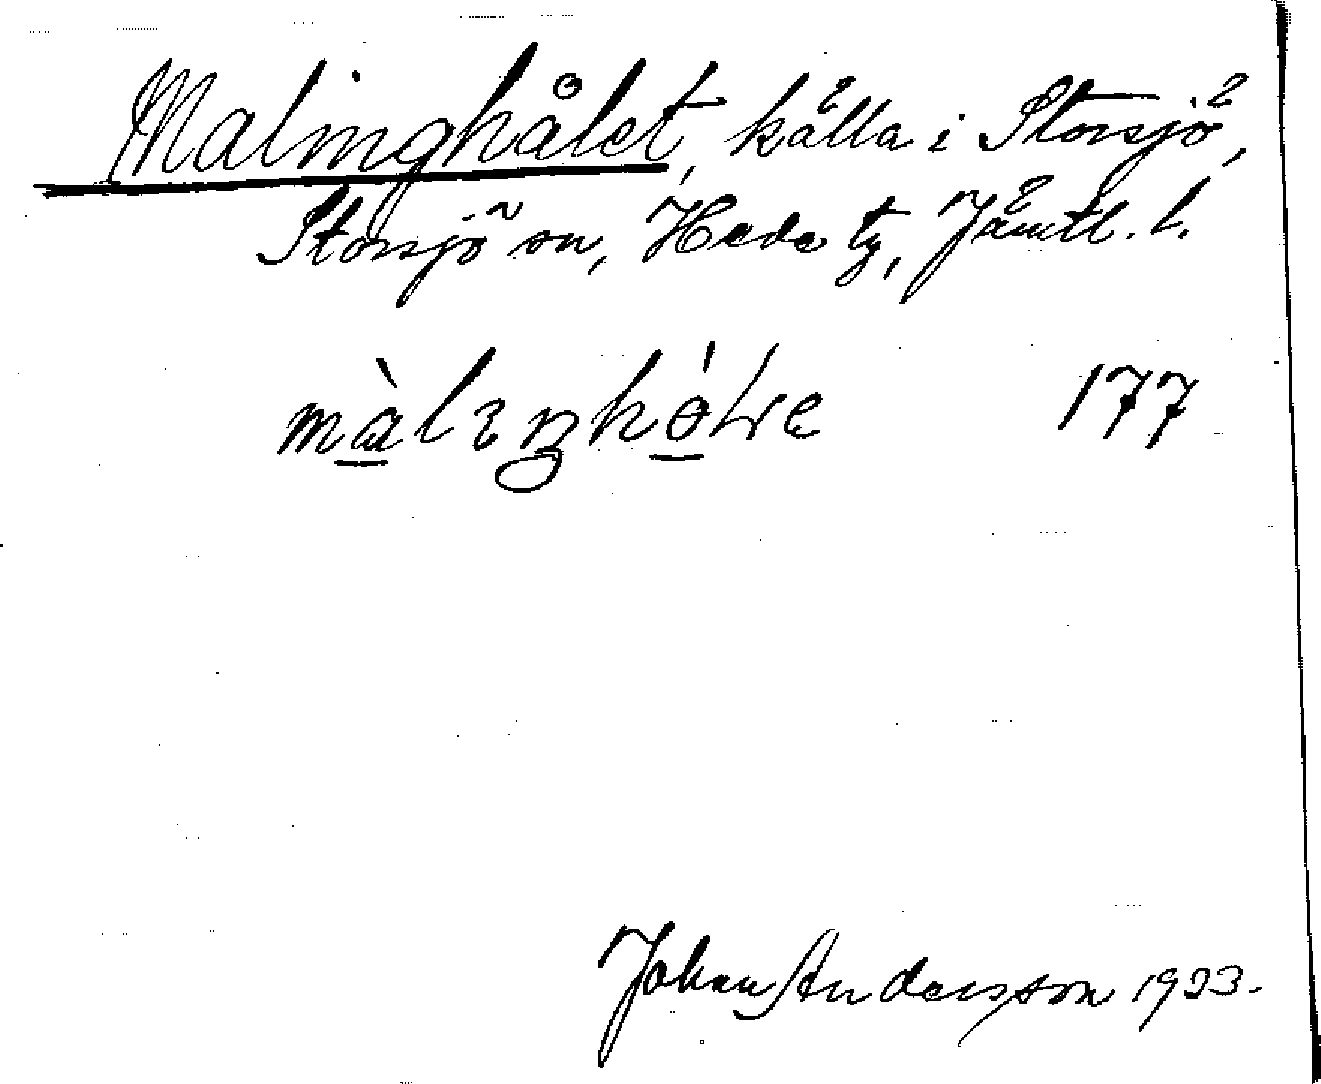 Malinghålet, källa i Storsjö,
Storsjö sn, Hede tg, Jämtl. l.
177
Johan Andersson 1933.